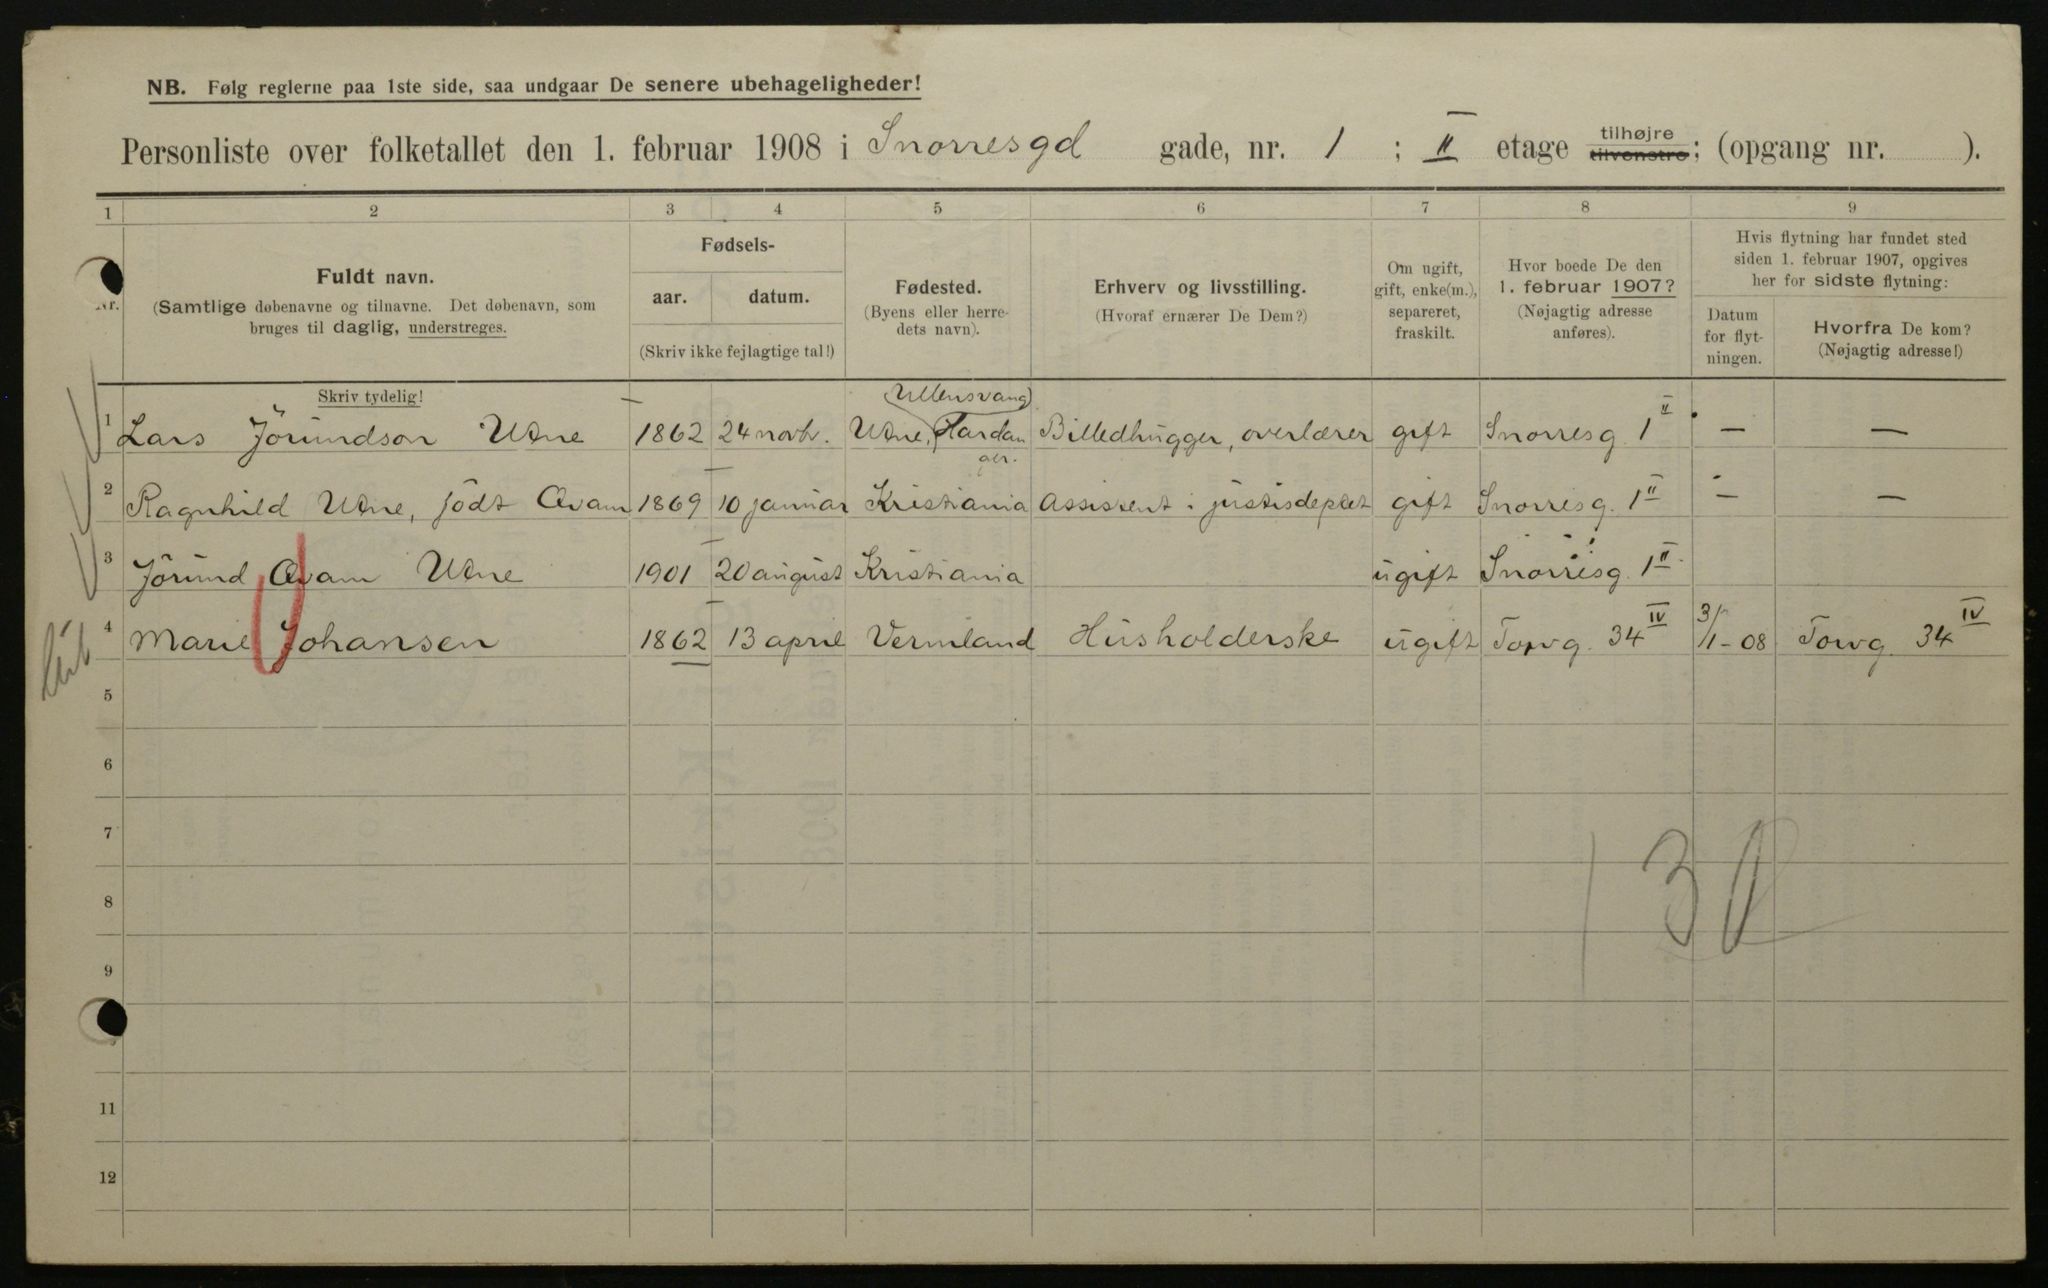 NB. Følg reglerne paa 1ste side, saa undgaar De senere ubehageligheder!
Personliste over folketallet den 1. februar 1908 i Snorresgd gade, nr. 1 ; II etage tilhøjre tilvenstre; (opgang nr. ).
1 2 3 4 5 6 7 8 9
Nr.
Fuldt navn.
(Samtlige døbenavne og tilnavne. Det døbenavn, som
bruges til daglig, understreges.
Skriv tydelig!
Fødsels-
aar. datum.
(Skriv ikke fejlagtige tal!)
Fødested.
(Byens eller herre-
dets navn).
Erhverv og livsstilling.
(Hvoraf ernærer De Dem?)
Om ugift,
gift, enke(m.),
separeret,
fraskilt.
Hvor boede De den
1. februar 1907?
(Nøjagtig adresse
anføres).
Hvis flytning har fundet sted
siden 1. februar 1907, opgives
her for sidste flytning:
Datum
for flyt-
ningen.
Hvorfra De kom?
(Nøjagtig adresse!)
Ullensvang
1 Lars Jörundson Utne 1862 24 novbr. Utne, Hardan Billedhugger, overlærer gift Snorresg. 1 II — —
ger.
2 Ragnhild Utne, født Qvam 1869 10 januar Kristiania Assistent i justisdeptet gift Snorresg. 1 II — —
3 Jörund Qvam Utne 1901 20 august Kristiania ugift Snorresg. 1 II
4 Marie Johansen 1862 13 april Vermland Husholderske ugift Torvg. 34 IV 3/1-08 Torvg. 34 IV
5
6
7
8
9
11
12